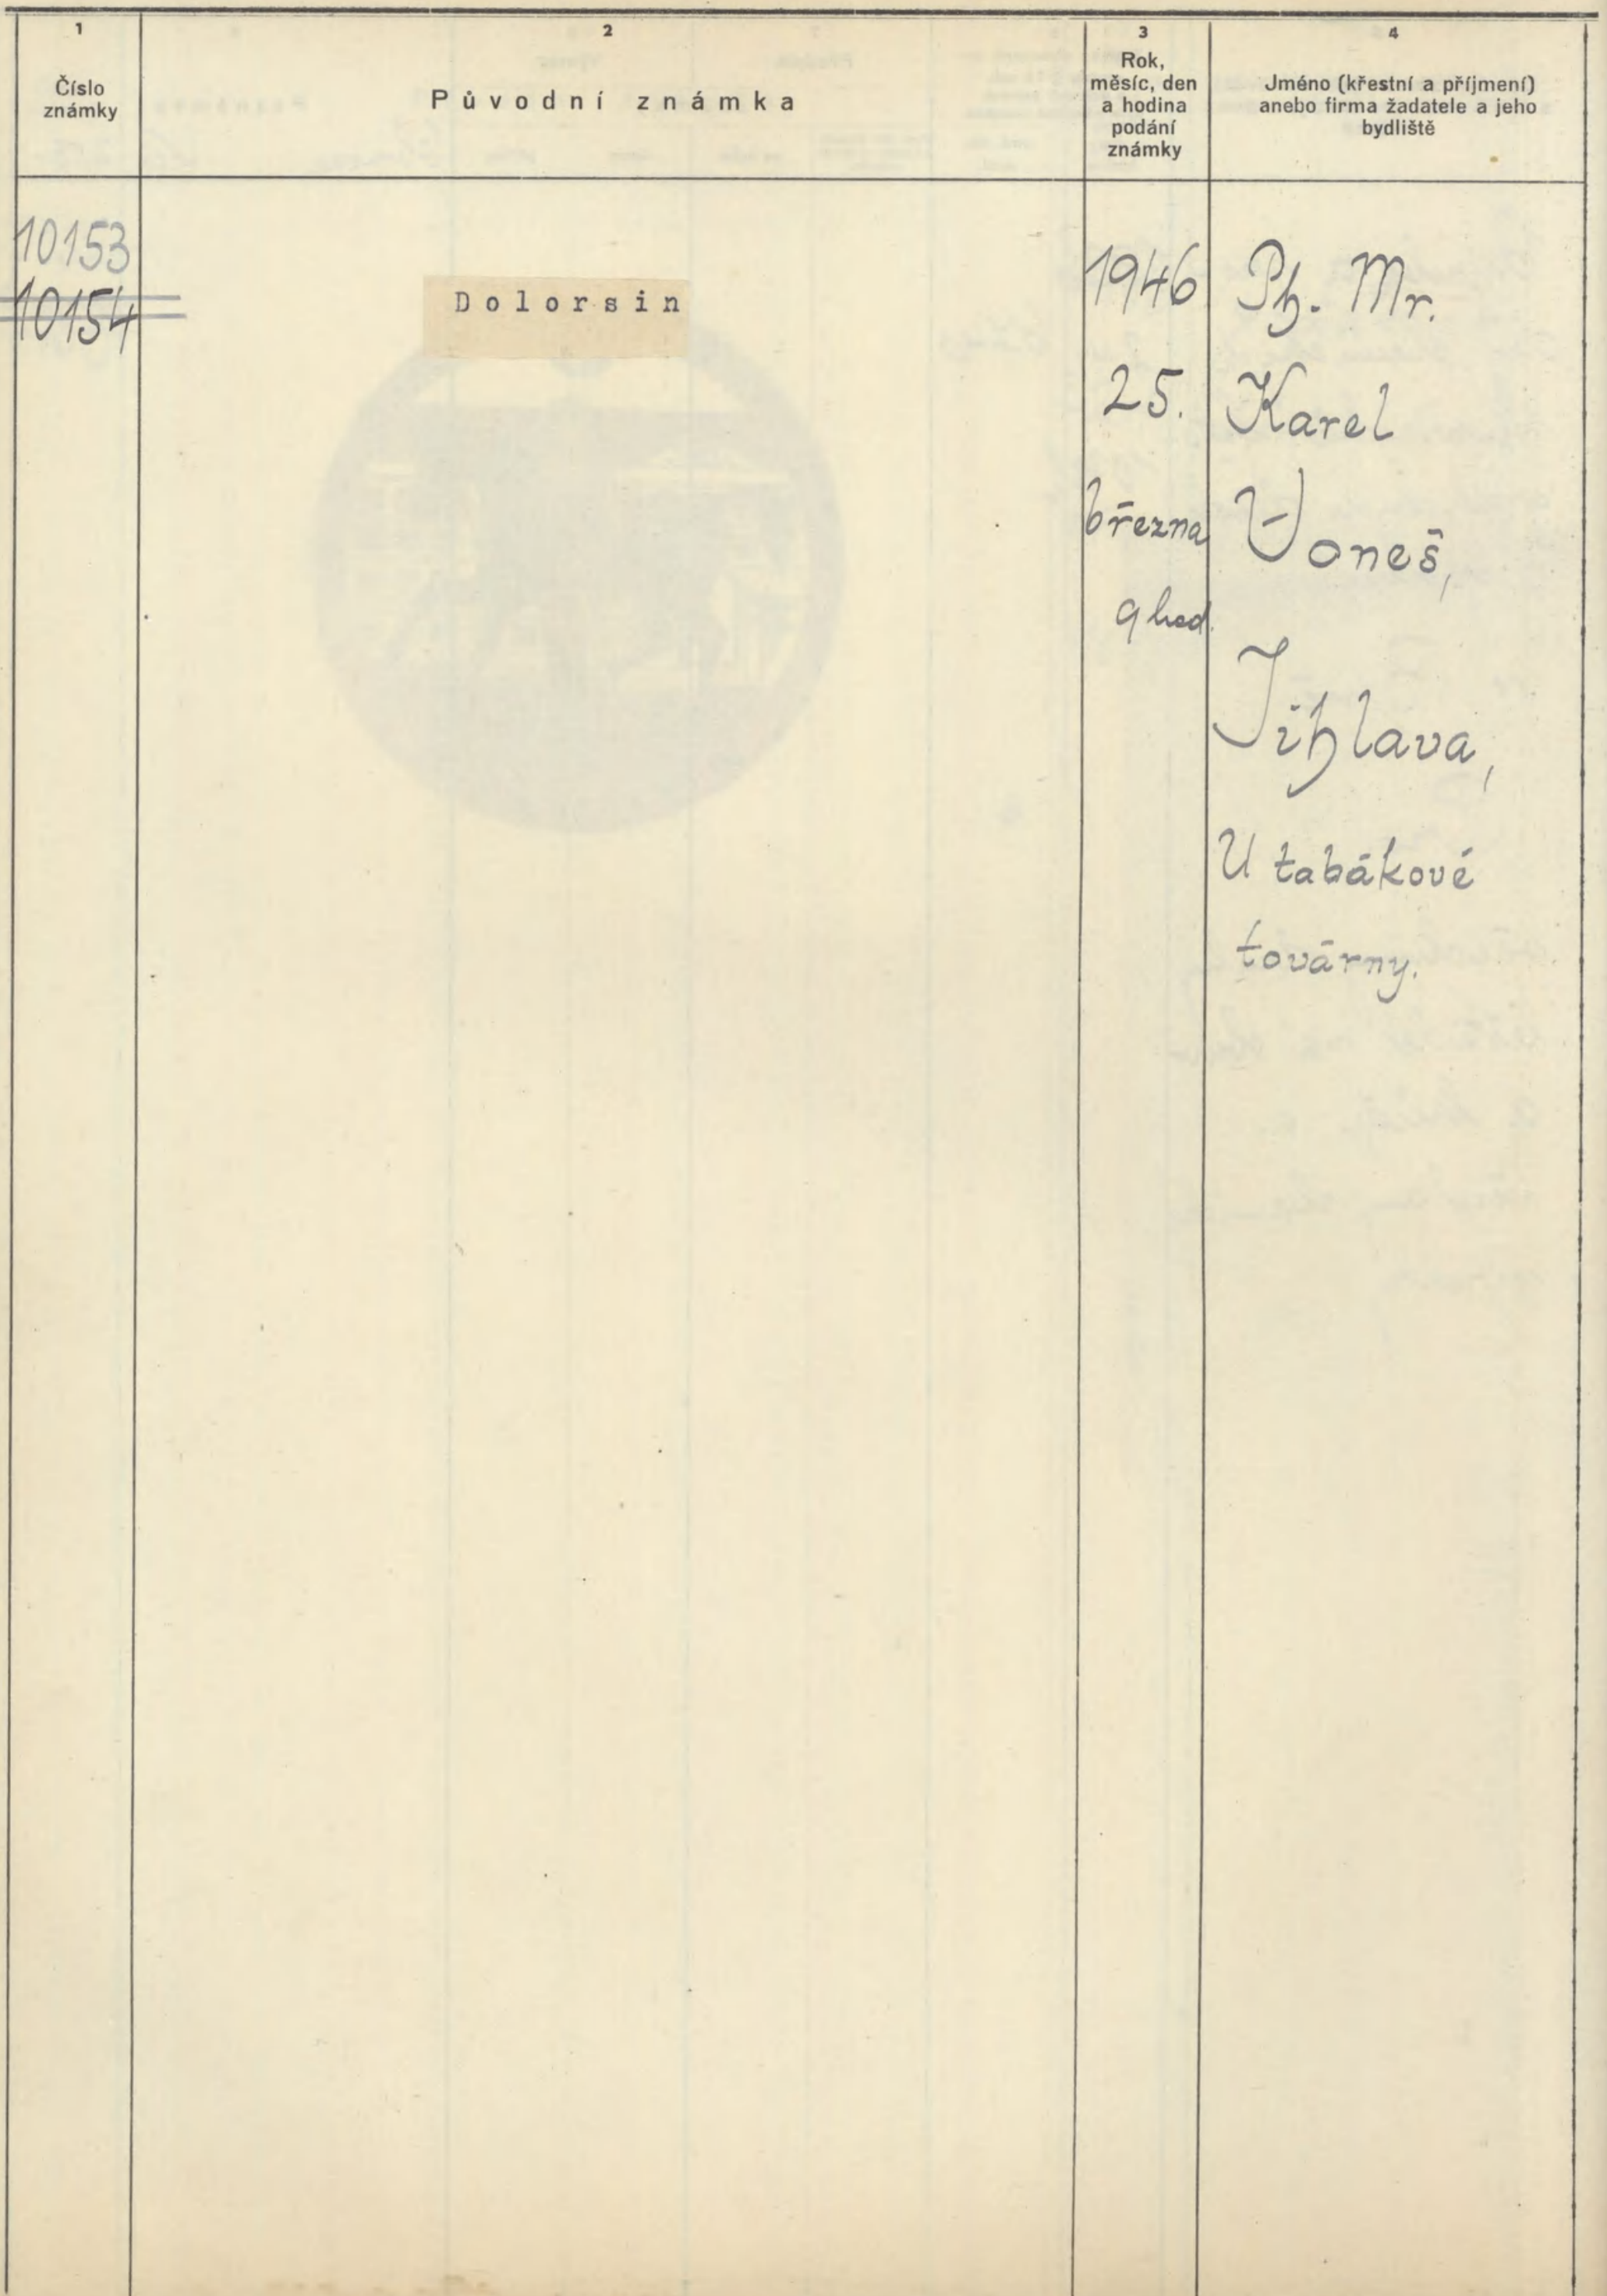 1
Číslo
známky
2
Původní známka
3
Rok,
měsíc, den
a hodina
podání
známky
4
Jméno (křestní a příjmení)
anebo firma žadatele a jeho
bydliště
10153
10154
Dolorsin
1946
25.
března
9 hod.
Ph. Mr.
Karel
Voneš,
Jihlava,
U tabákové
továrny.